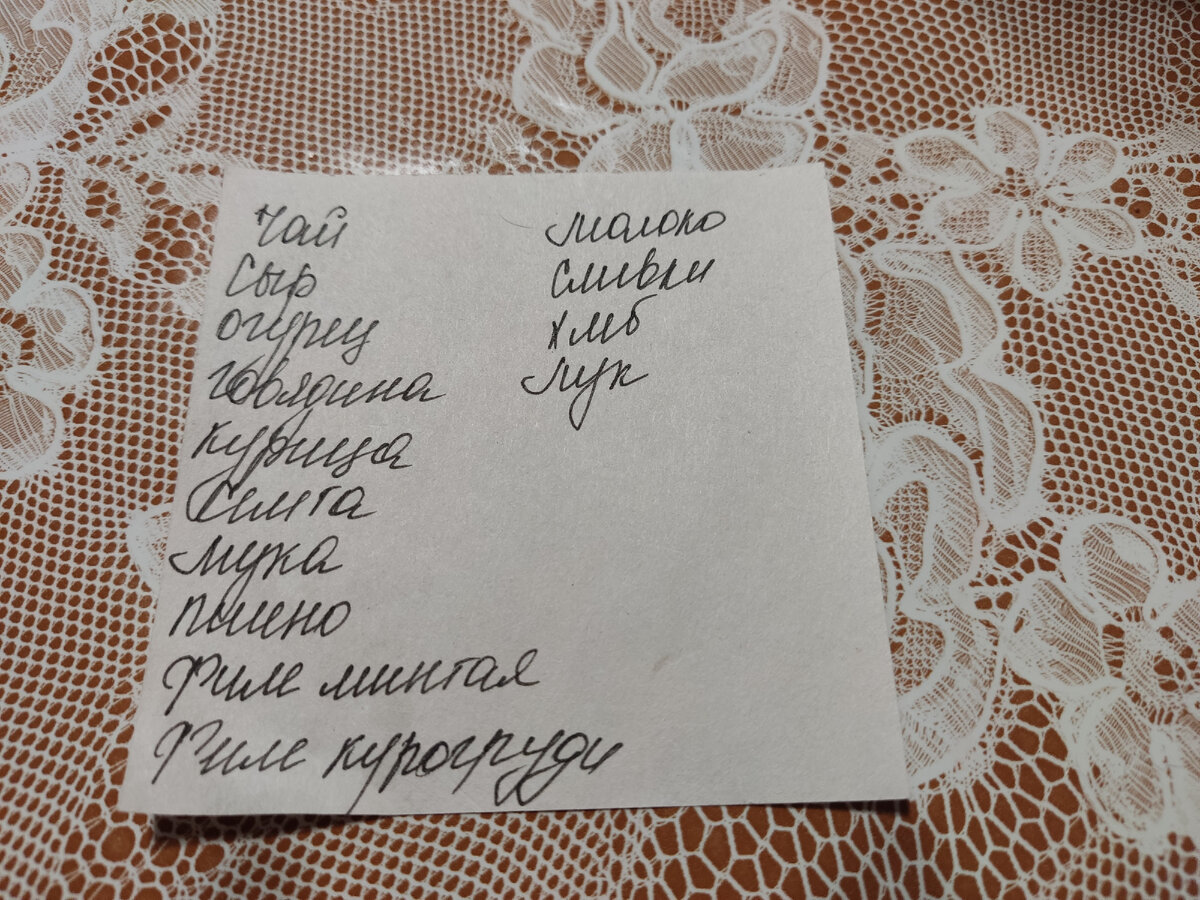 Чай
Сыр
Огурец
Говядина
Курица
Семга
Мука
Пшено
Филе минтая
Филе курогруди
Молоко
Сливки
Хлеб
Лук